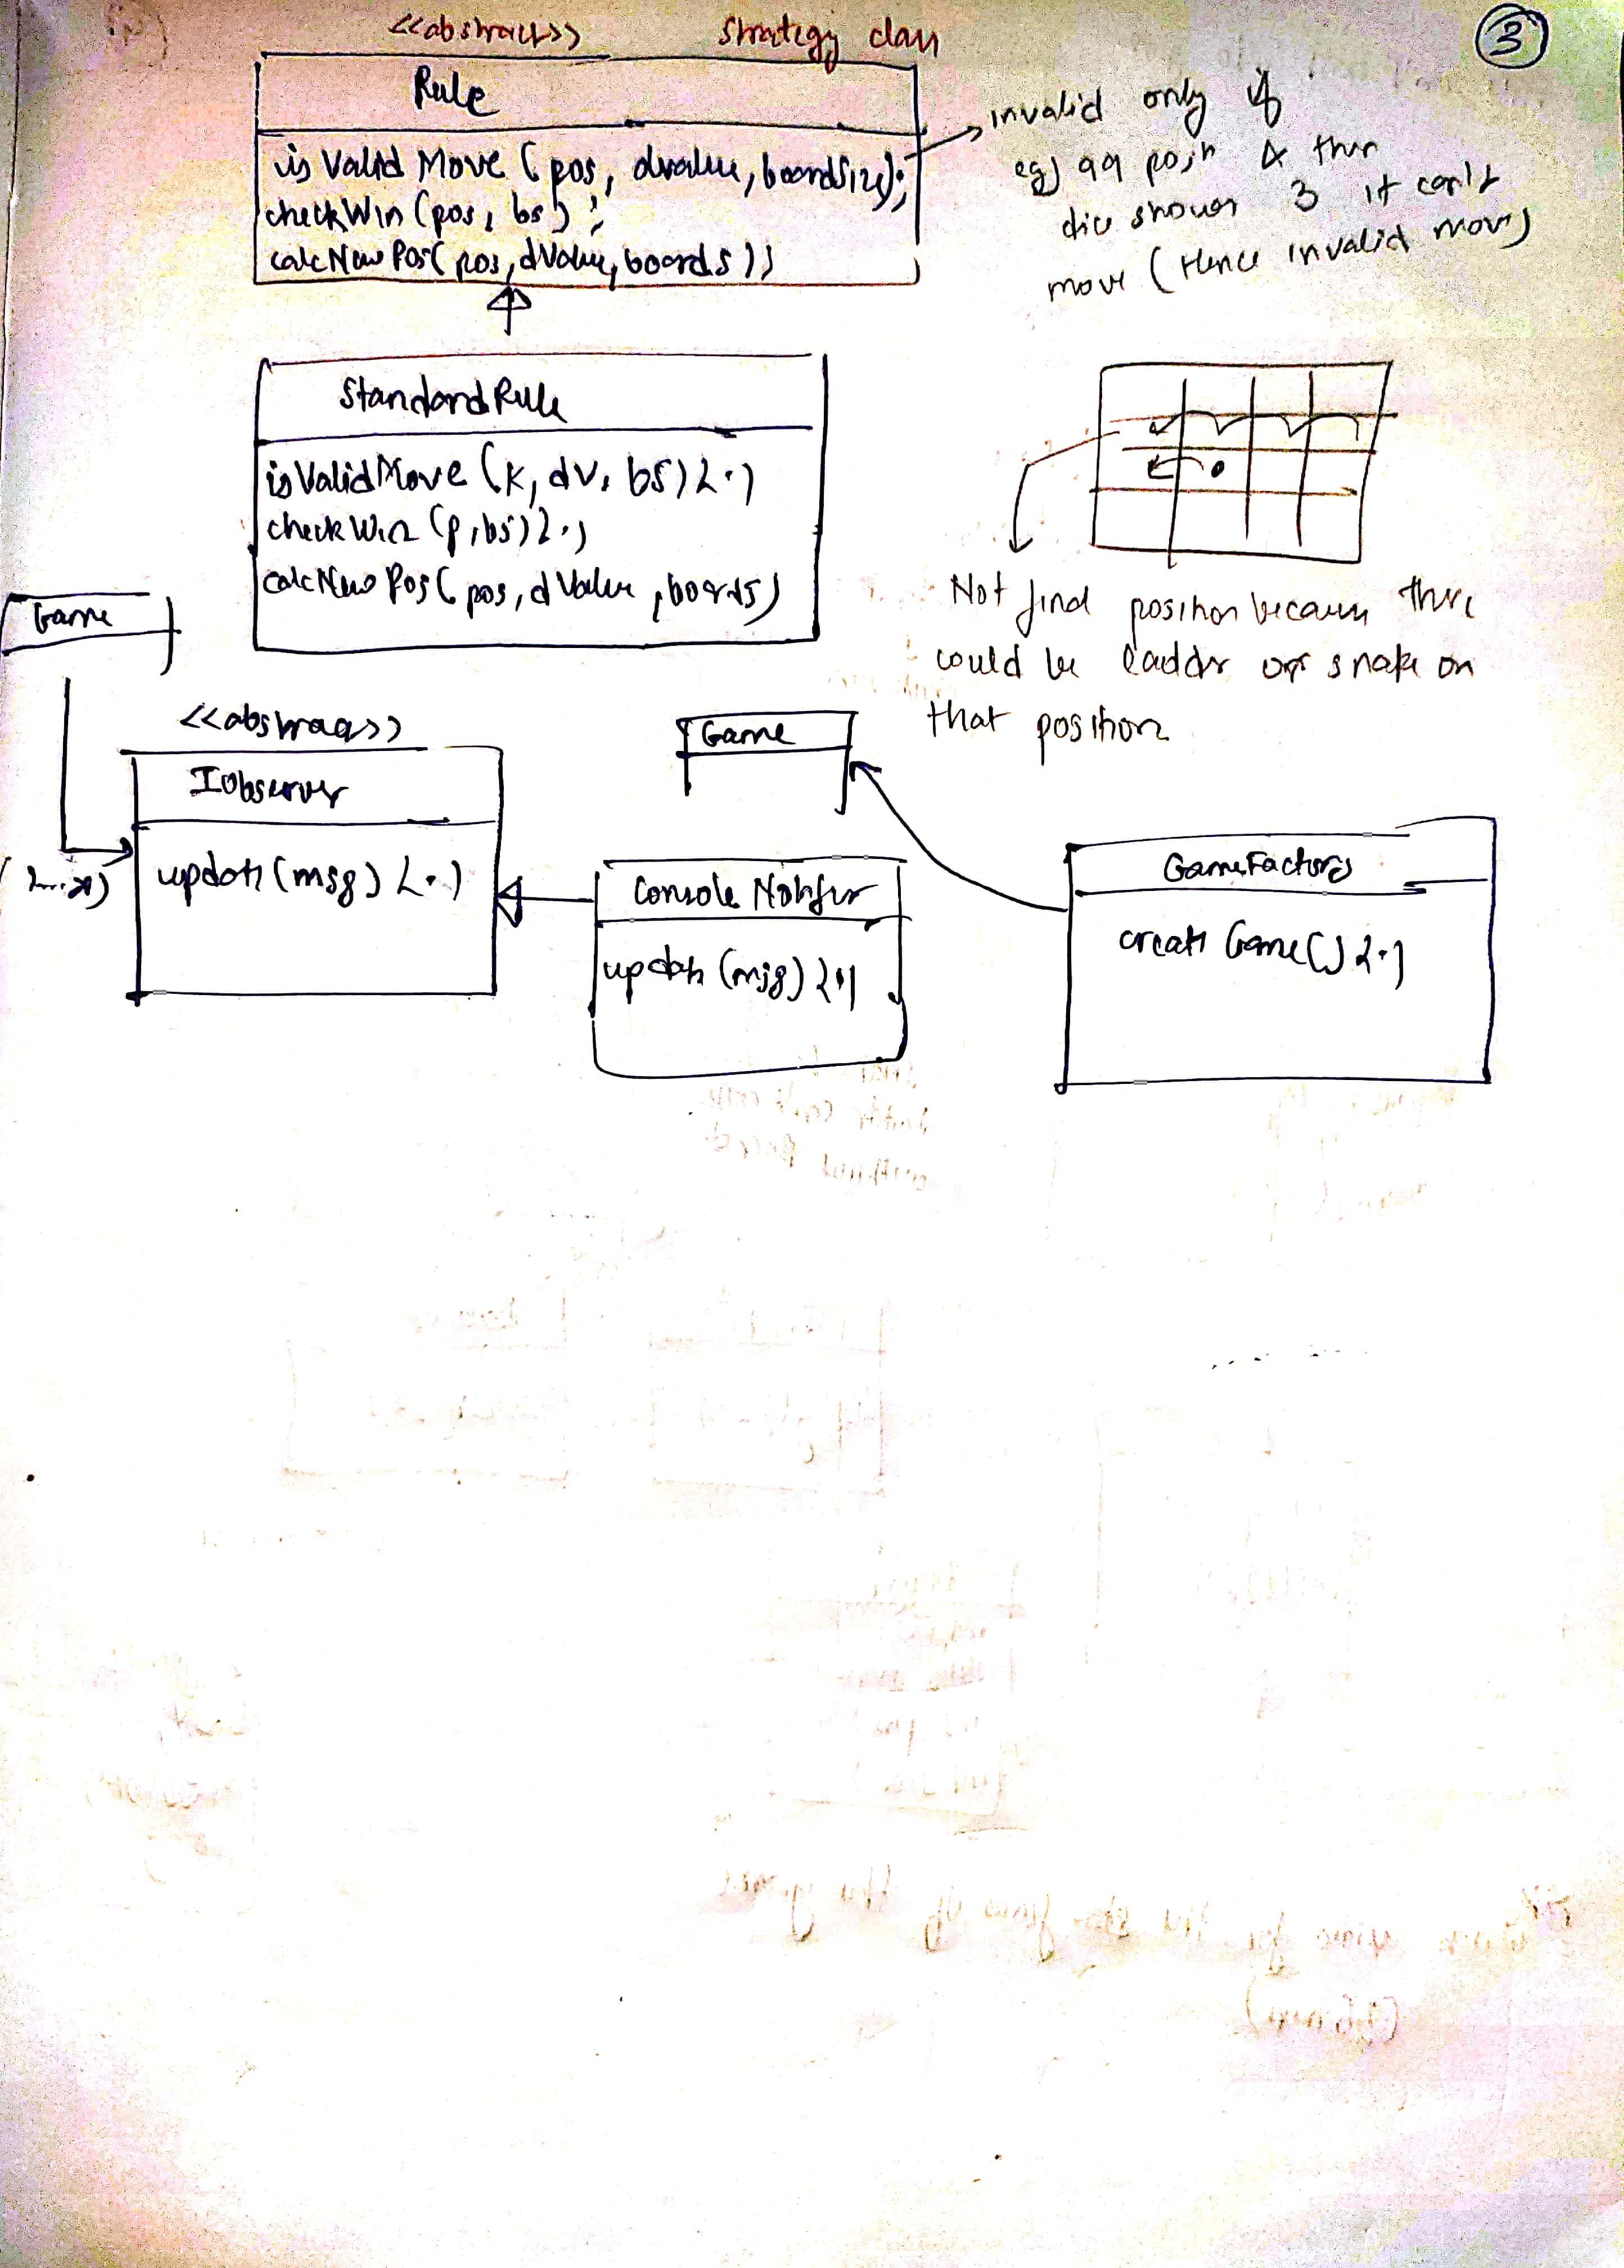 <<abstract>> Strategy class
3
Rule
isValid Move (pos, dvalue, boardSize);
checkWin (pos, bs);
calcNewPos( pos, dValue, boards ))
invalid only if
eg) 99 posn & then
dice shows 3 it can't
move (Hence invalid move)
Standard Rule
isValidMove (k, dv, bs) {.}
check Win (p, bs) {.}
calcNewPos( pos, dValue, boards)
Not final position because there
could be ladder or snake on
that position
Game
(1...*)
<<abstract>>
IObserver
update (msg) {.}
Game
Console Notifier
update (msg) {.}
GameFactory
create Game() {.}